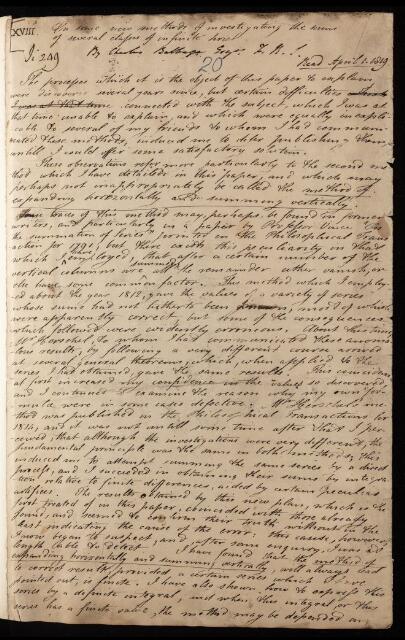 XVIII.
On some new methods of investigating the sums
of several classes of infinite series
By Charles Babbage Esqr. F.R.S.
p: 249
20
Read April 1. 1819
The processes which it is the object of this paper to explain
were discovered several years since, but certain difficulties
connected with the subject, which I was at
that time unable to explain, and which were equally inexpli-
cable to several of my friends to whom I had communi-
cated these methods, induced me to defer publishing them
untill I could offer some satisfactory solution.
These observations refer more particularly to the second me-
thod which I have detailed in this paper, and which may
perhaps not inappropriately be called the method of
expanding horizontally and summing vertically.
Some traces of this method may, perhaps, be found in former
writers, and particularly in a paper by Professor Vince, On
the summation of Series, printed in the Philosophical Trans-
action for 1791; but there exists this peculiarity in that
which I have employed, that after a certain number of the
vertical columns are summed all the remainder either vanish, or
else have some common factor. This method which I employ-
ed about the year 1812, gave the values of a variety of series
whose sums had not hitherto been known, most of which
were apparently correct, but some of the consequences
which followed were evidently erroneous. About this time,
Mr Herschel, to whom I had communicated these anoma-
lous results, by following a very different course arrived
at several general theorems, which, when applied to the
series I had obtained, gave the same results. This coincidence
at first increased my confidence in the values so discovered,
and I continued to examine the reason why my own for-
mulæ were in some cases defective. Mr Herschel's me-
thod was published in the Philosophical Transactions for
1814, and it was not untill some time after that I per-
ceived, that although the investigations were very different, the
fundamental principle was the same in both methods; this
induced me to attempt summing the same series by a direct
process, and I succeeded in obtaining their sums by integra-
tion relative to finite differences, aided by certain peculiar
artifices. The results obtained by this new plan, which is the
first treated of in this paper, coincided with those already
found, and seemed to confirm their truth, without in the
least indicating the cause of the error: this cause, however,
I soon began to suspect, and, after some enquiry, I was at
length able to detect. I have found that the method of
expanding horizontally and summing vertically, will always lead
to correct results, provided a certain series which I have
pointed out, is finite. I have also shewn how to express this
series by a definite integral, and when this integral or this
series has a finite value, the method may be depended on